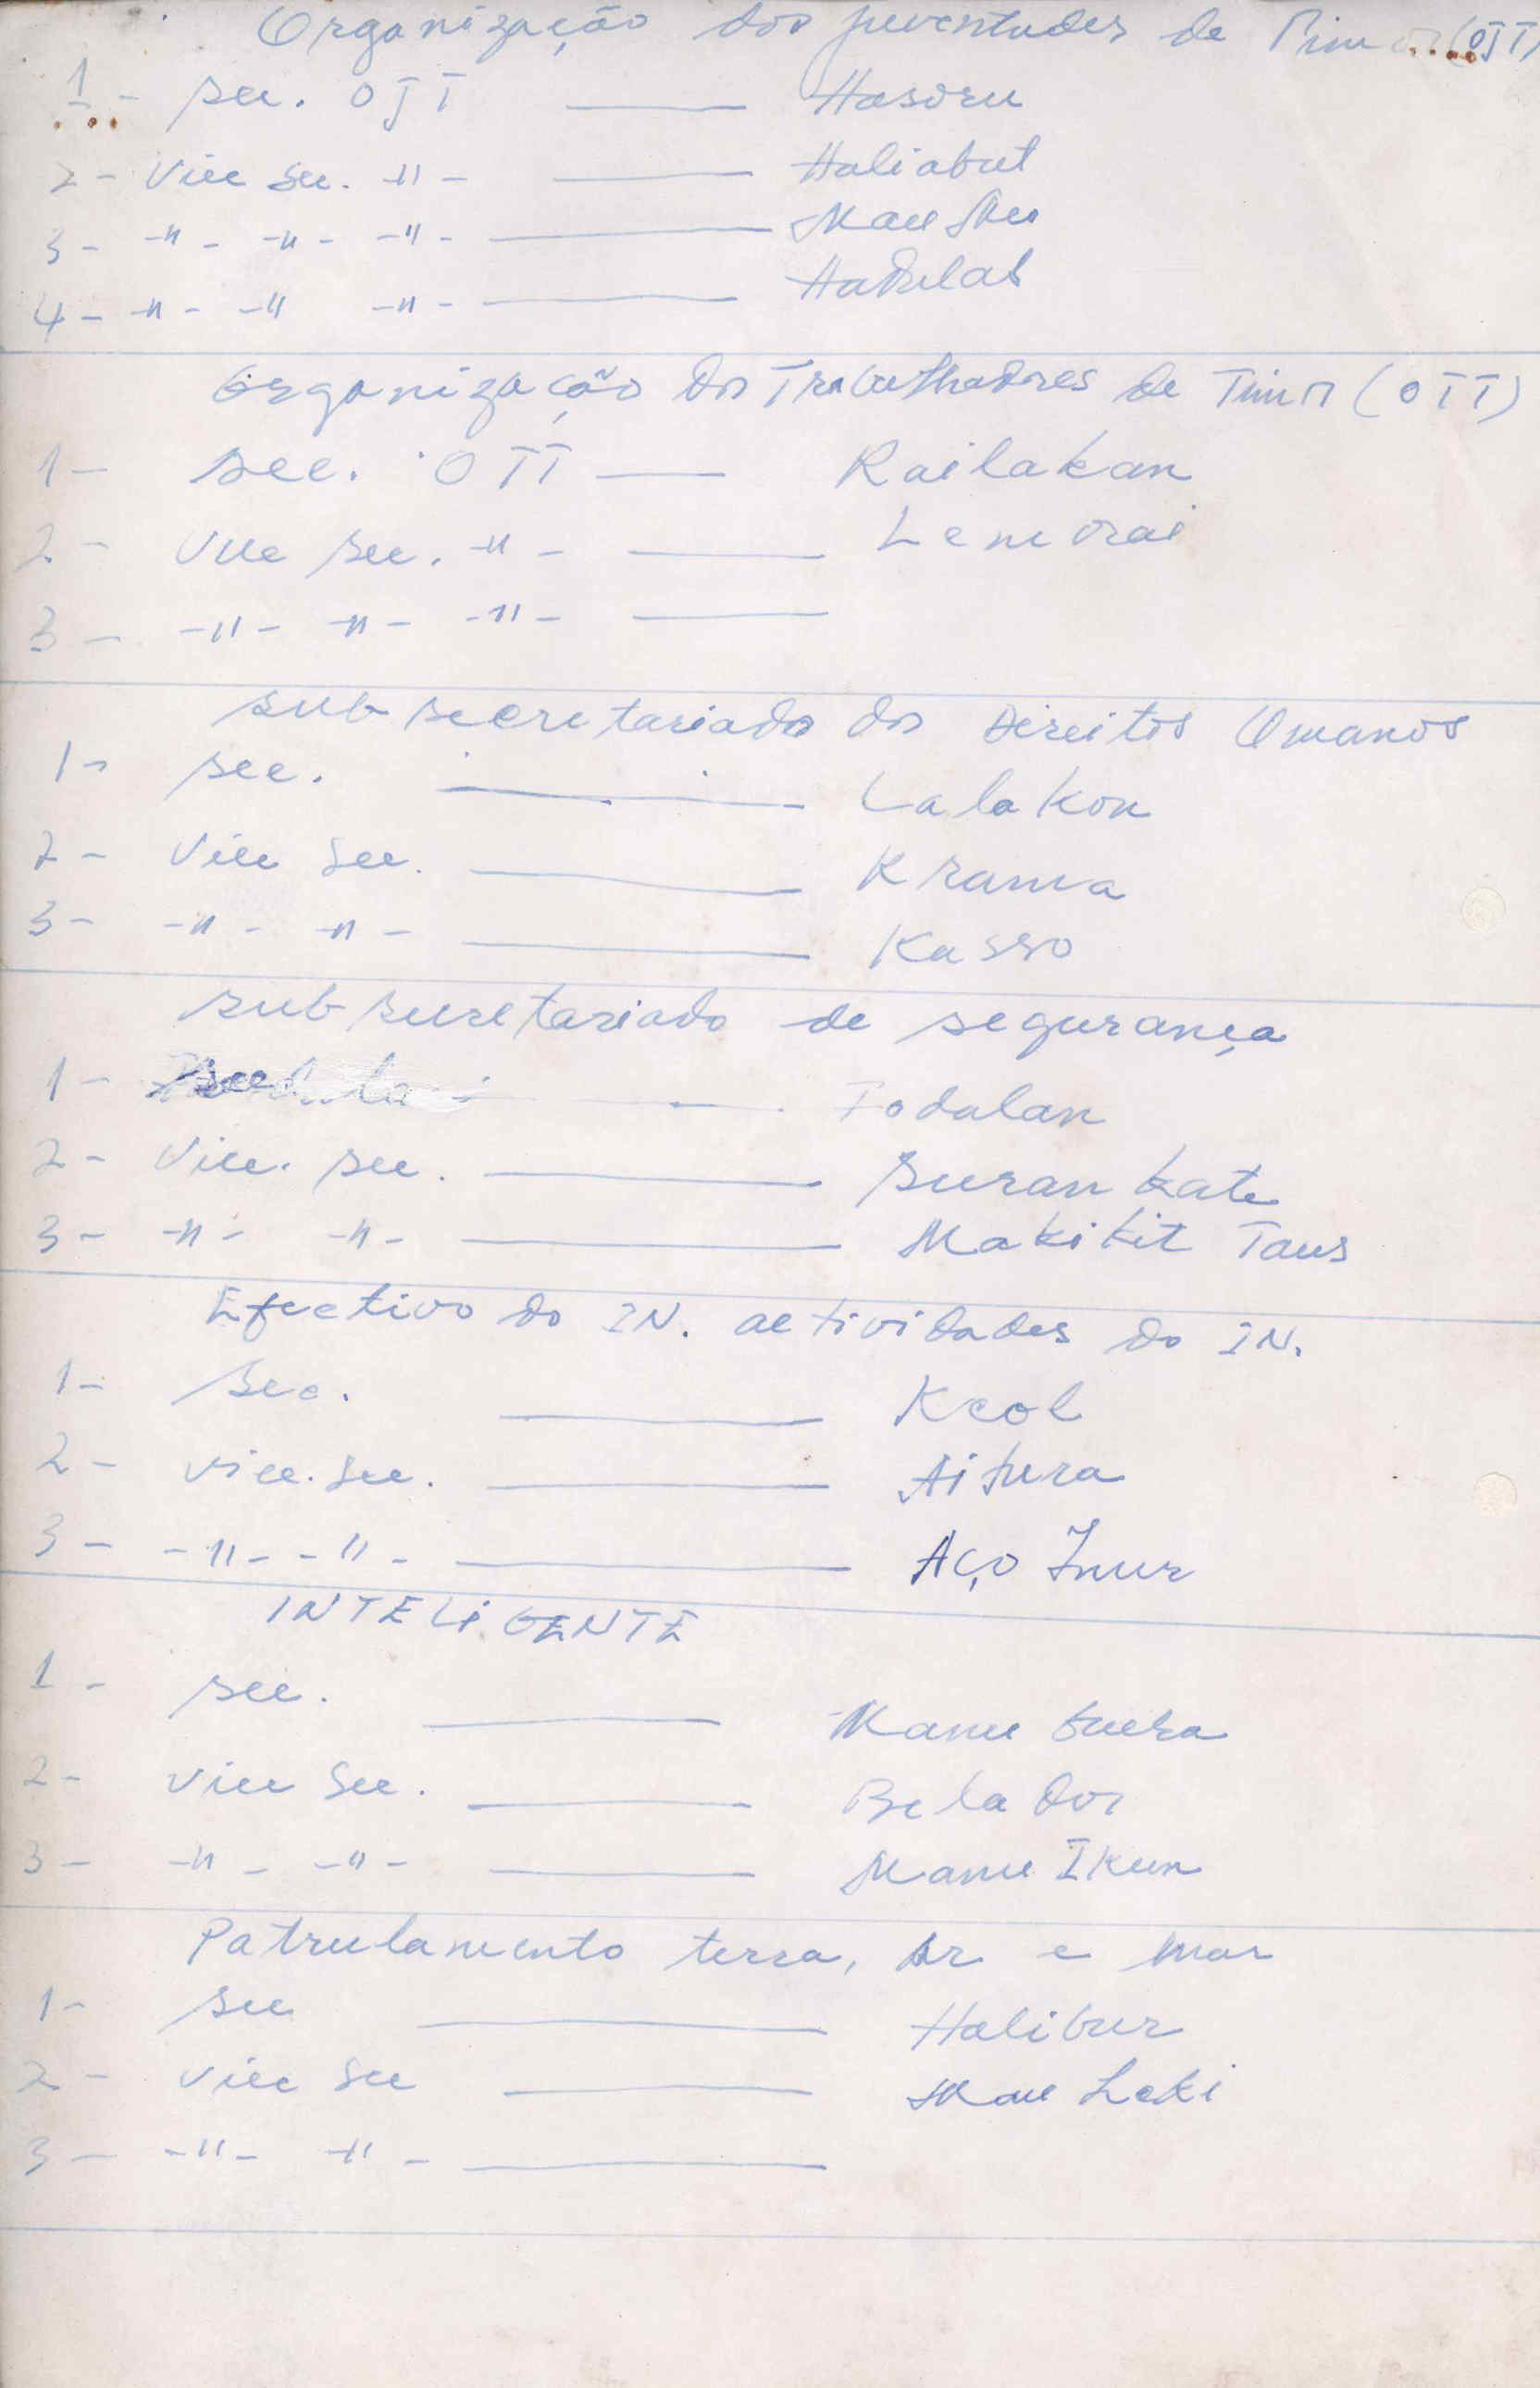 Organização dos juventudes de Timor (OJT)
1 - sec. OJT — Hasoru
2 - Vice sec. -"- — Haliabut
3 - -"- -"- -"- — Mau
4 - -"- -" -"- —
Organização dos Trabalhadores de Timor (OTT)
1 - sec. OTT — Railakan
2 - Vice sec. -"- — Lemorai
3 - -"- -"- -"- —
sub secretariado dos Direitos Omanos
1 - sec. — Lalakon
2 - Vice sec. — Krama
3 - -"- -"- — Kasso
sub secretariado de segurança
1 - sec — Fodalan
2 - Vice. sec. — Suran kate
3 - -"- -"- — Makikit Taus
Efectivo do IN. actividades do IN.
1 - sec. — Keol
2 - vice. sec. — Aitura
3 - -"- -"- — Aço Inur
INTELiGENTE
1 - sec. — Manu
2 - Vice sec. — Bela Dor
3 - -"- -"- — Manu Ikun
Patrulamento terra, Ar e mar
1 - sec — Halibur
2 - vice sec — Mau Leki
3 - -"- -"- —